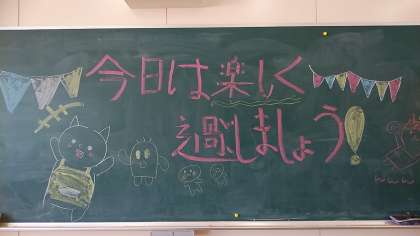 今日は楽しく
過ごしましょう!